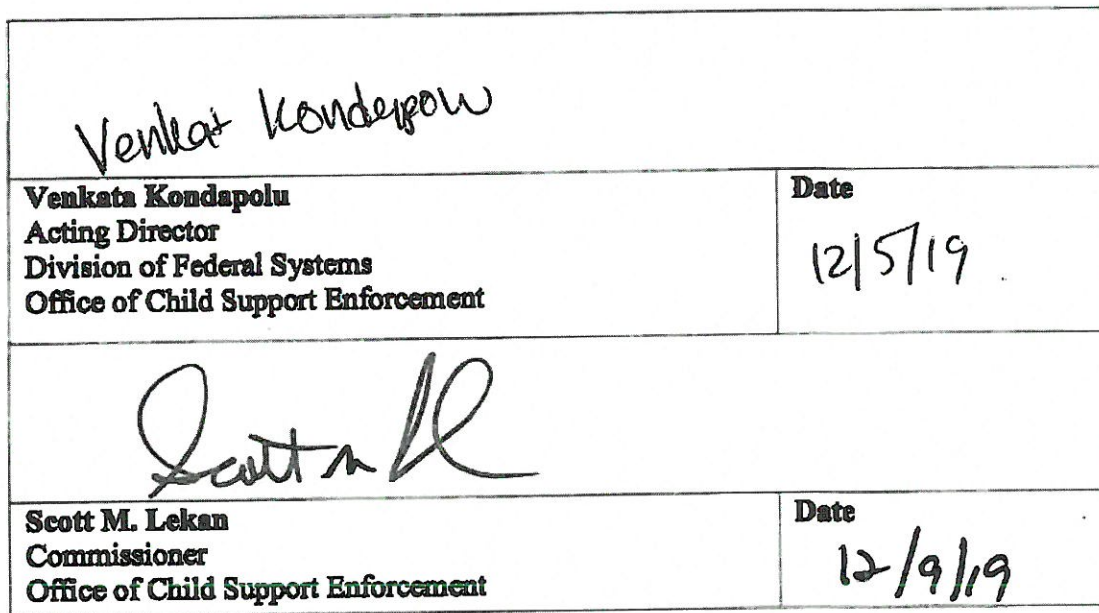 Venkat Kondapolu
Venkata Kondapolu
Acting Director
Division of Federal Systems
Office of Child Support Enforcement
Date
12/5/19
Scott M
Scott M. Lekan
Commissioner
Office of Child Support Enforcement
Date
12/9/19